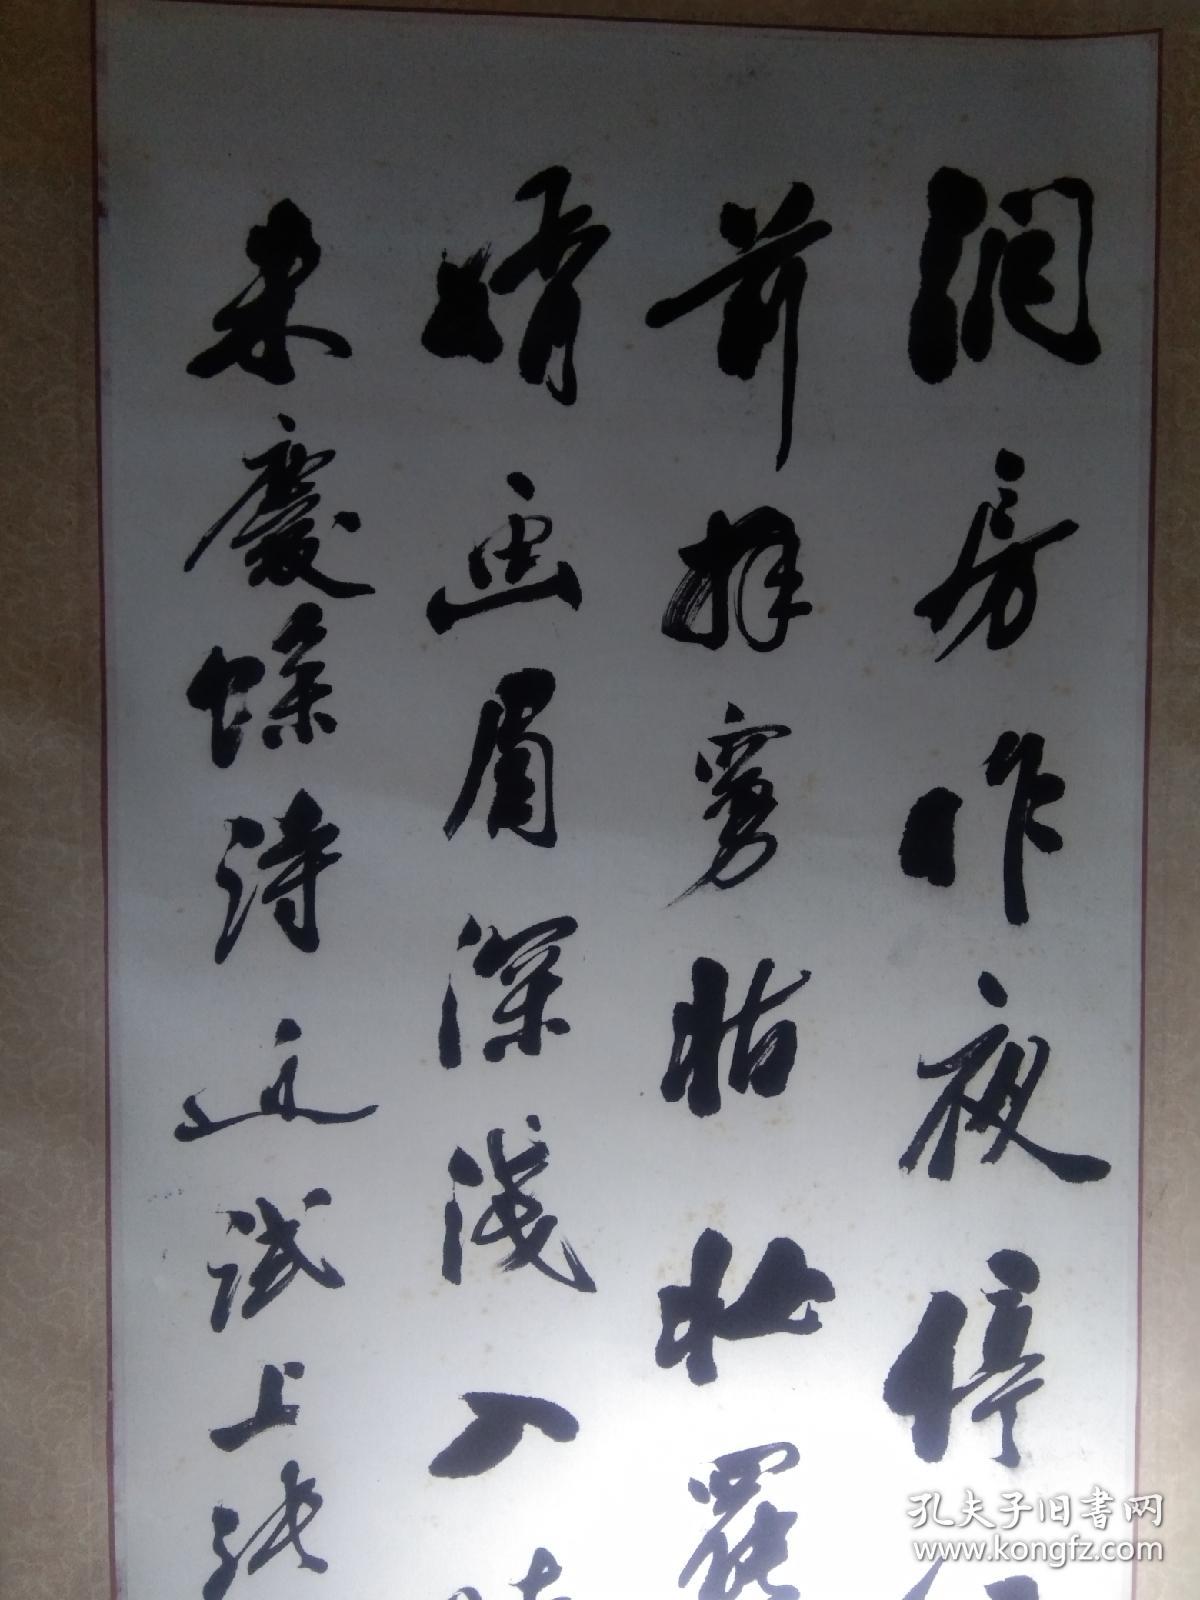 洞房昨夜停
前拜舅姑妝罷
婿画眉深淺入
朱慶餘詩近試上張
孔夫子旧书网
www.kongfz.com